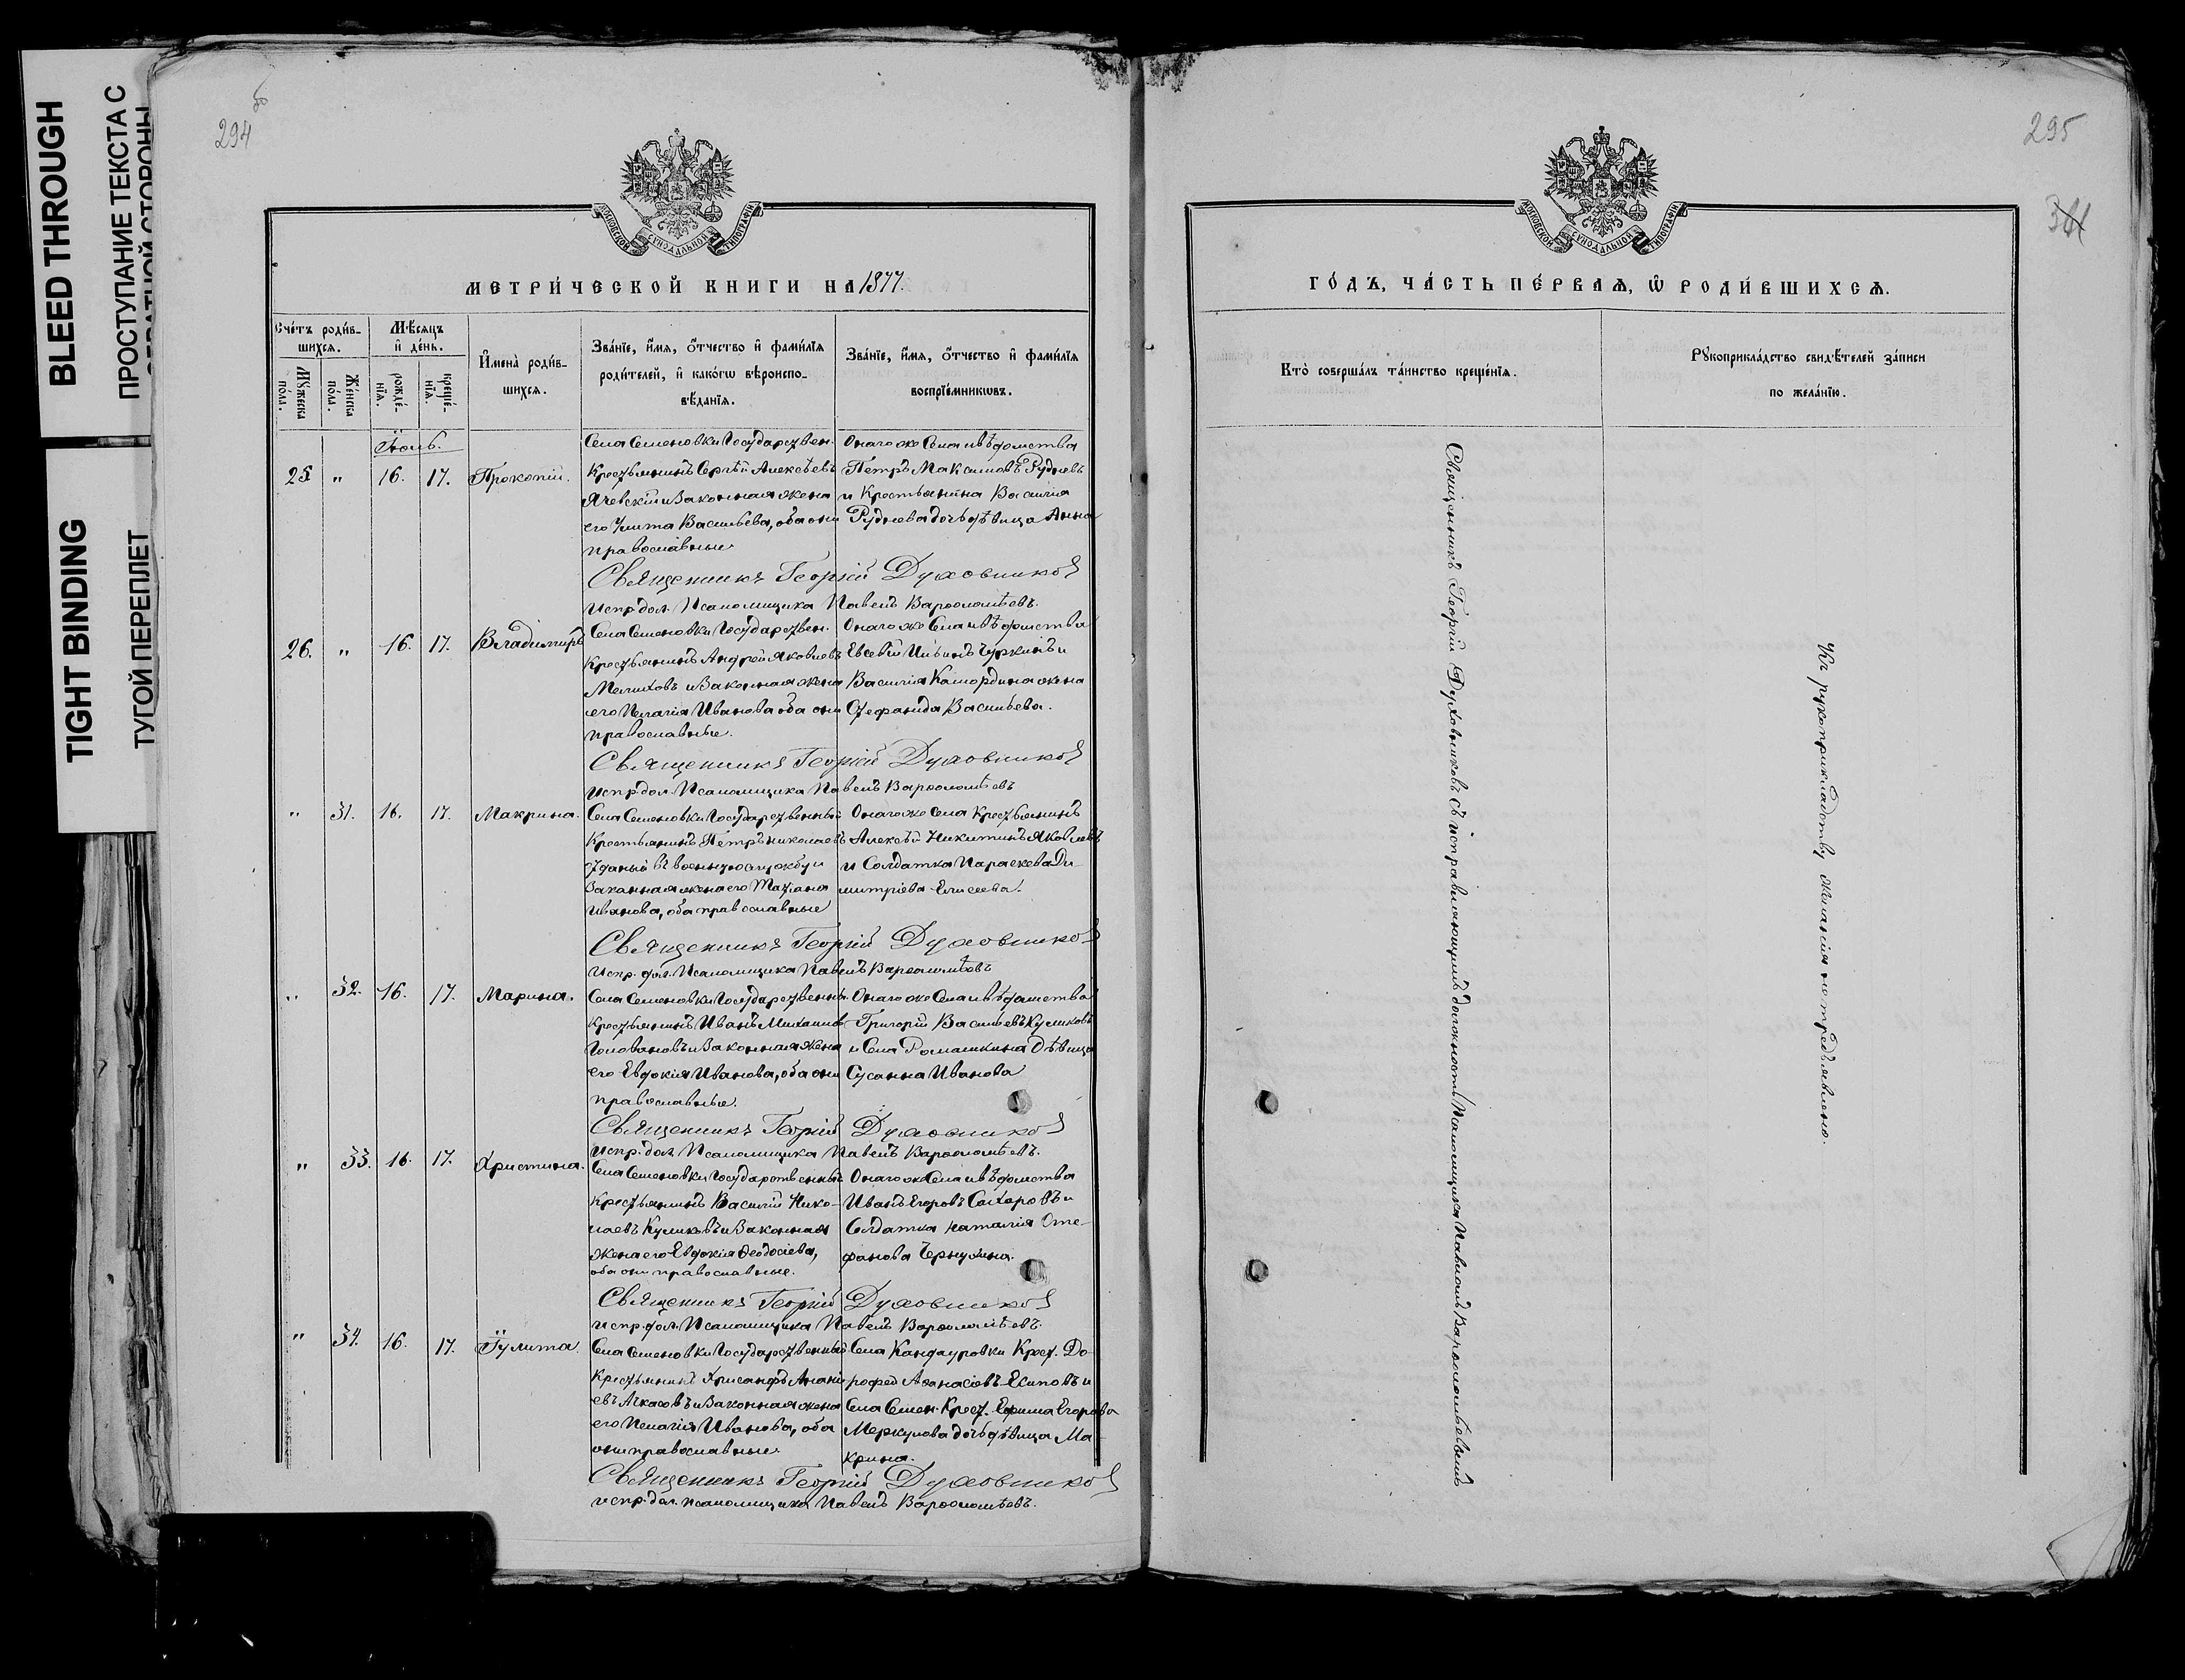 BLEED THROUGH
ПРОСТУПАНИЕ ТЕКСТА С
ОБРАТНОЙ СТОРОНЫ
TIGHT BINDING
ТУГОЙ ПЕРЕПЛЕТ
294 об
МОСКОВСКОЙ СѴНОДАЛЬНОЙ ТИПОГРАФІИ
МЕТРИ́ЧЕСКОЙ КНИГИ НА 1877.
Сче́тъ роди́в-
шихся.
Му́жеска
по́ла.
Же́нска
по́ла.
Мѣ́сяцъ
и҆ де́нь.
рожде́-
нїя.
креще́-
нїя.
И҆мена̀ роди́в-
шихся.
Зва́нїе, и҆́мя, ѻ҆́тчество и҆ фами́лїя
роди́телей, и҆ како́гѡ вѣроиспо-
вѣ́данїя.
Зва́нїе, и҆́мя, ѻ҆́тчество и҆ фами́лїя
воспрїе́мникѡвъ.
Іюль.
25 " 16. 17. Прокопій.
Села Семеновки Государствен.
Крестьянинъ Сергѣй Алексѣевъ
Ячевскій и Законная жена
его Улита Васильева, оба они
православные
Онаго же Села и вѣдомства
Петръ Максимовъ Рудневъ
и Крестьянина Василія
Руднева дочь дѣвица Анна
Священникъ Георгій Духовников
Испр. дол. Псаломщика Павелъ Варѳоломѣевъ.
26. " 16. 17. Владиміръ
Села Семеновки Государствен.
Крестьянинъ Андрей Яковлевъ
Мелиховъ и Законная жена
его Пелагія Иванова оба они
православные.
Онаго же Села и вѣдомства
Евсевій Ильинъ Чуркинъ и
Василія Камордина жена
Стефанида Васильева.
Священникъ Георгій Духовников
Испр. дол. Псаломщика Павелъ Варѳоломѣевъ
" 31. 16. 17. Макрина.
Села Семеновки Государственный
Крестьянинъ Петръ Николаевъ
отданый въ военную службу и
Законная жена его Татіана
Иванова, оба православные
Онаго же Села Крестьянинъ
Алексѣй Никитинъ Яковлевъ
и Солдатка Параскева Ди-
митріева Елисеева.
Священникъ Георгій Духовников
Испр. дол. Псаломщика Павелъ Варѳоломѣевъ
" 32. 16. 17. Марина.
Села Семеновки Государственн.
Крестьянинъ Иванъ Михаилов
Головановъ и Законная жена
его Евдокія Иванова, оба они
православные.
Онаго же Села и вѣдомства
Григорій Васильевъ Куликовъ
и Села Ромашкина Дѣвица
Сусанна Иванова
Священникъ Георгій Духовников
Испр. дол. Псаломщика Павелъ Варѳоломѣевъ.
" 33. 16. 17. Христина.
Села Семеновки Государственный
Крестьянинъ Василій Нико-
лаевъ Куликовъ и Законная
жена его Евдокія Ѳеодосіева,
оба они православные.
Онаго же Села и вѣдомства
Иванъ Егоровъ Сахаровъ и
Солдатка Наталія Сте-
фанова Чернухина.
Священникъ Георгій Духовников
Испр. дол. Псаломщика Павелъ Варѳоломѣевъ.
" 34. 16. 17. Іулита.
Села Семеновки Государственный
Крестьянинъ Хрисанфъ Анани-
евъ Ачкасовъ и Законная жена
его Пелагія Иванова, оба
они православные
Села Кандауровки Крест. До-
рофей Аѳанасіевъ Есиповъ и
Села Семен. Крест. Ефима Егорова
Меркулова дочь дѣвица Ма-
крина.
Священникъ Георгій Духовников
испр. дол. псаломщика Павелъ Варѳоломѣевъ.
295
МОСКОВСКОЙ СѴНОДАЛЬНОЙ ТИПОГРАФІИ
ГО́ДЪ, ЧА́СТЬ ПЕ́РВАЯ, Ѡ҆ РОДИ́ВШИХСЯ.
Кто̀ соверша́лъ та́инство креще́нїя.
Рꙋкоприкла́дство свидѣ́телей за́писи
по жела́нїю.
Священникъ Георгій Духовниковъ съ исправляющимъ должность Псаломщика Павломъ Варѳоломѣевымъ
Къ рукоприкладству желанія не предъявлено.